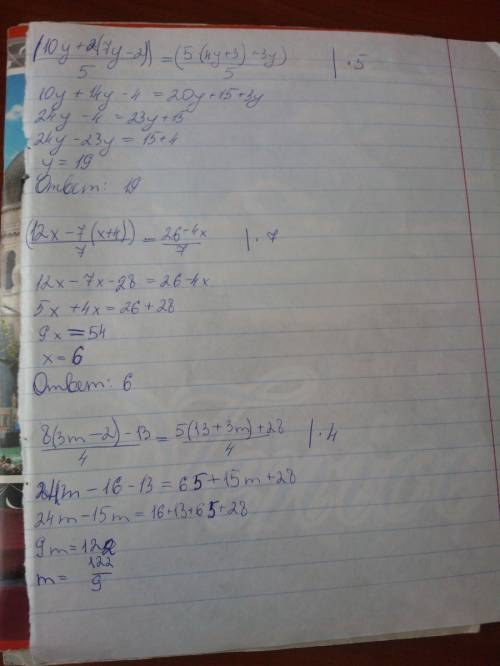 (10y+2(7y-2))/5 = (5(4y+3)+3y)/5 | ·5
10y + 14y - 4 = 20y+15+3y
24y - 4 = 23y+15
24y - 23y = 15+4
y = 19
Ответ: 19
(12x - 7(x+4))/7 = 26-4x/7 | · 7
12x - 7x - 28 = 26-4x
5x + 4x = 26 + 28
9x = 54
x = 6
Ответ: 6
8(3m-2)-13/4 = 5(13+3m)+28/4 | · 4
24m - 16 - 13 = 65+15m+28
24m - 15m = 16+13+65+28
9m = 122
m = 122/9